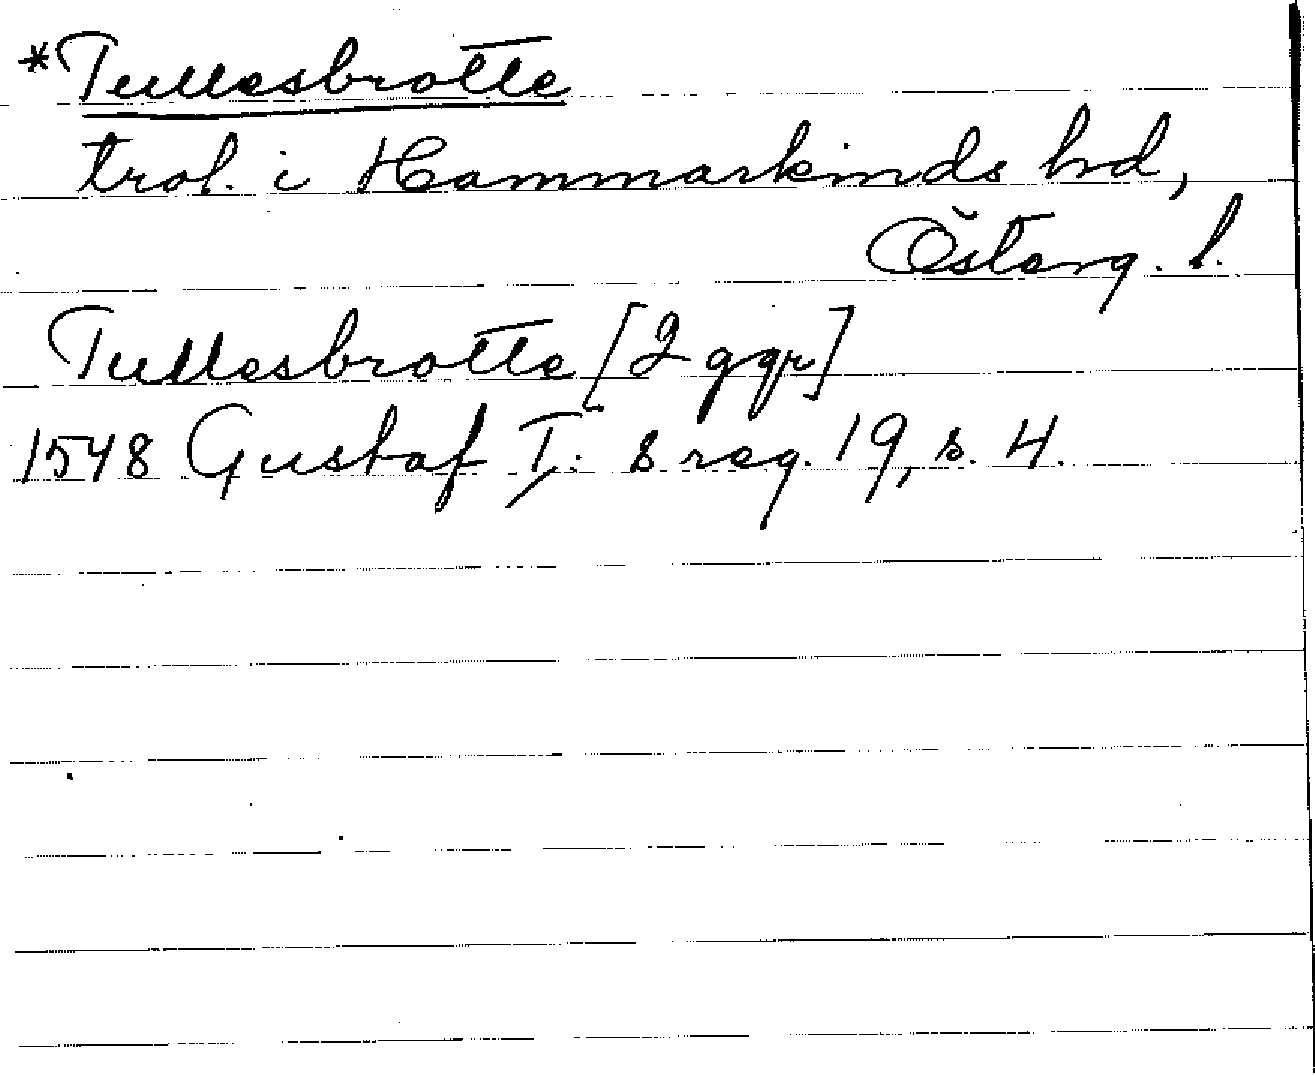 *Tullesbrotte
trol. i Hammarkinds hd,
Österg. l.
Tullesbrotte [2 ggr]
1548 Gustaf I: s reg. 19, s. 4.